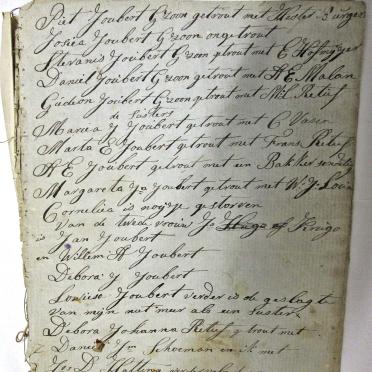 Piet Joubert G zoon getrout met Hester Burger
Josiea Joubert G zoon ongetrout
Stevanis Joubert G zoon getrout met E Hofmyger
Daniel Joubert G zoon getrout met A E Malan
Gidion Joubert G zoon getrout met M L Retief
de susters
Maria Y Joubert getrout met C
Marta E Joubert getrout met Frans Retief
A E Joubert getrout met een Bakker
Margareta Joubert getrout met W J Louw
Cornelia is nooyt gestorven
van de twede vrouw J Hugo of
is Jan Joubert
en Willem A Joubert
Debora J Joubert
Louiese Joubert verder is de geslagte
van myn niet meer als een suster
Debora Johanna Retief getrout met
Daniel Schoeman en ik met
Jos D